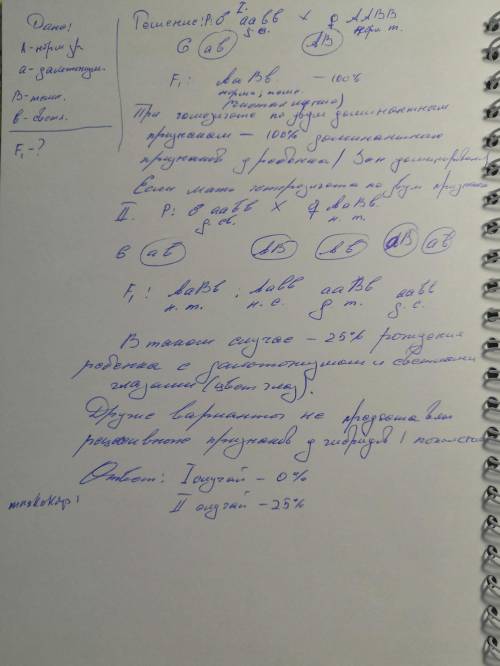 Дано:
А - норм. зр.
а - дальтонизм.
В - темн.
в - светл.
F₁ - ?
I.
Решение: Р: ♂ аавв × ♀ ААВВ
д. св. норм. т.
G ав АВ
F₁: АаВв - 100%
норм; темн.
При гомозиготе по двум доминантным
признакам - 100% доминантного
признака у ребенка / Зак доминирован
Если мать гетерозигота по двум признака
II. Р: ♂ аавв × ♀ АаВв
д. св. н. т.
G ав АВ Ав аВ ав
F₁: АаВв ; Аавв ааВв аавв
н. т. н. с. д. т. д. с.
В таком случае - 25% рождения
ребенка с дальтонизмом и светлыми
глазами (цвет глаз).
Другие варианты не
рецессивного признаков у гибридов
Ответ: I случай - 0%
II случай - 25%